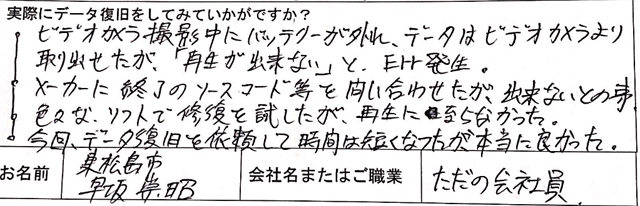 実際にデータ復旧をしてみていかがですか？
ビデオカメラ撮影中にバッテリーが外れ、データはビデオカメラより
取出せたが、「再生が出来ない」と、Err発生。
メーカーに終了のソースコード等を問い合わせたが、出来ないとの事
色々な、ソフトで修復を試したが、再生に至らなかった。
今回、データ復旧を依頼して時間は短くなったが本当に良かった。
お名前 東松島市 会社名またはご職業 ただの会社員
早坂 崇昭